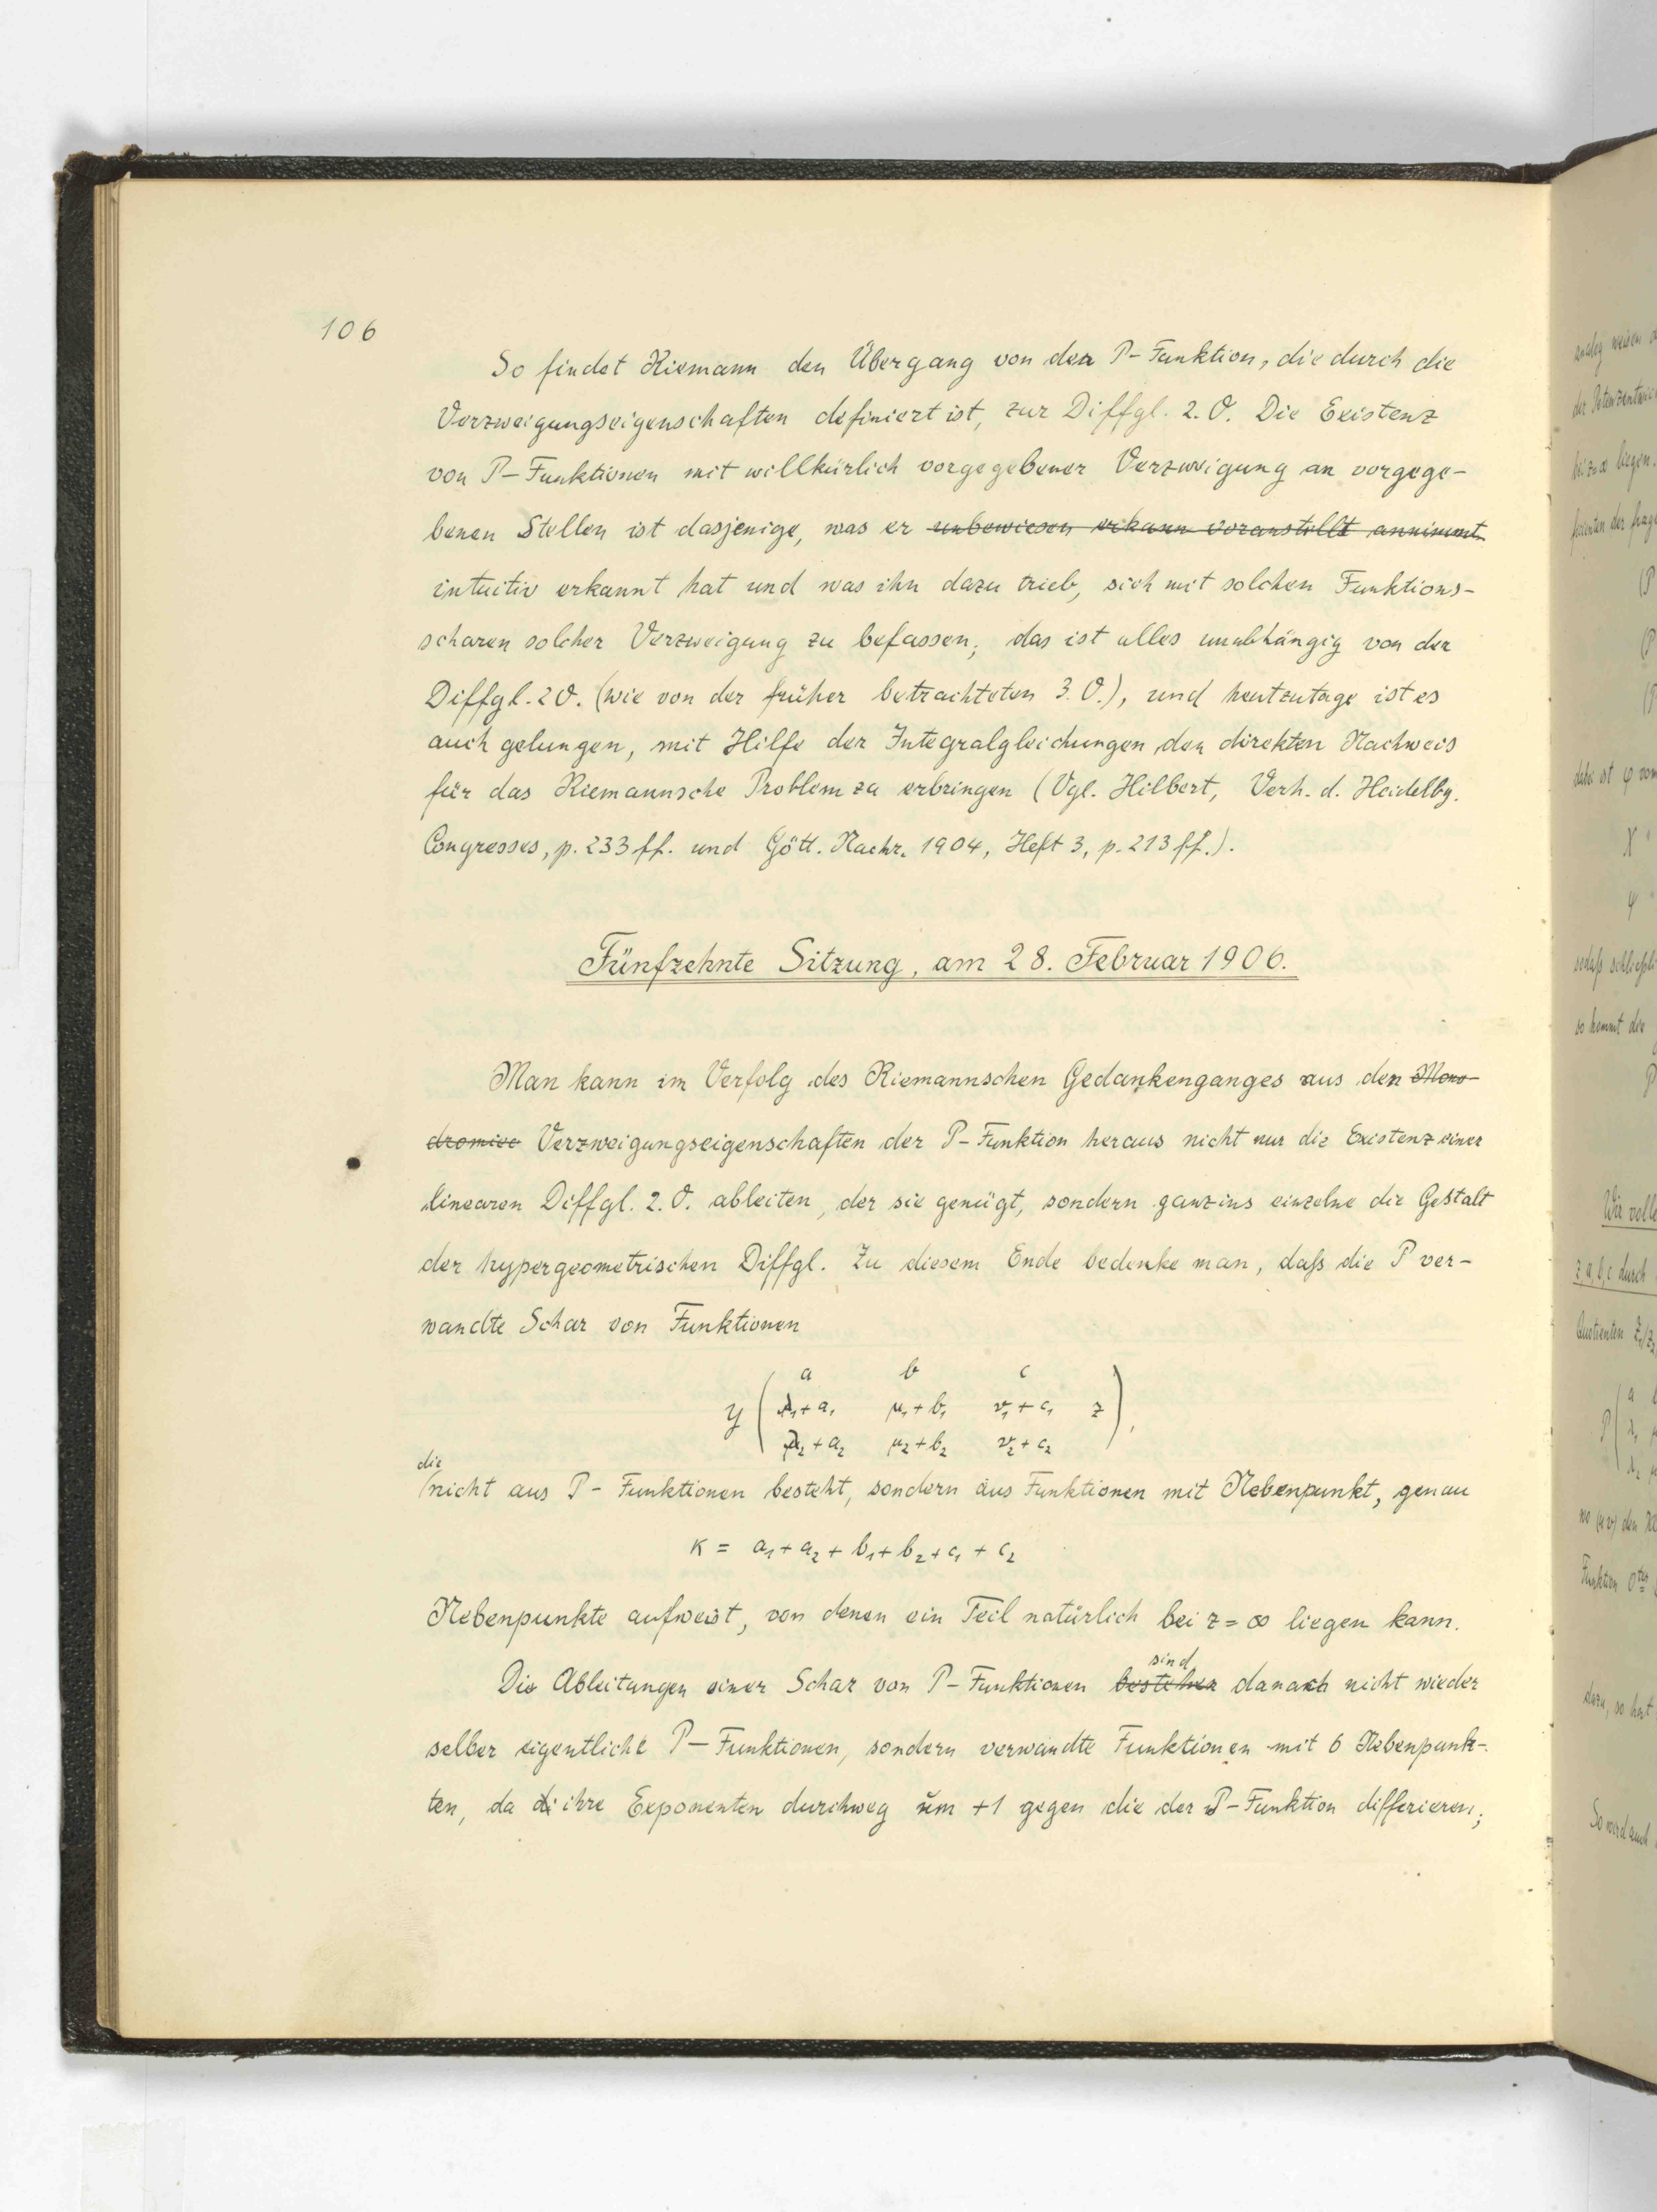 106
So findet Riemann den Übergang von der P-Funktion, die durch die
Verzweigungseigenschaften definiert ist, zur Diffgl. 2. O. Die Existenz
von P-Funktionen mit willkürlich vorgegebener Verzweigung an vorgege-
benen Stellen ist dasjenige, was er unbewiesen erkann voranstellt annimmt
intuitiv erkannt hat und was ihn dazu trieb, sich mit solchen Funktions-
scharen solcher Verzweigung zu befassen; das ist alles unabhängig von der
Diffgl. 2 O. (wie von der früher betrachteten 3. O.), und heutzutage ist es
auch gelungen, mit Hilfe der Integralgleichungen den direkten Nachweis
für das Riemannsche Problem zu erbringen (Vgl. Hilbert, Verh. d. Heidelbg.
Congresses, p. 233 ff. und Gött. Nachr. 1904, Heft 3, p. 213 ff.).
Fünfzehnte Sitzung, am 28. Februar 1906.
Man kann im Verfolg des Riemannschen Gedankenganges aus den Mono-
dromiee Verzweigungseigenschaften der P-Funktion heraus nicht nur die Existenz einer
linearen Diffgl. 2. O. ableiten, der sie genügt, sondern ganz ins einzelne die Gestalt
der hypergeometrischen Diffgl. Zu diesem Ende bedenke man, daß die P ver-
wandte Schar von Funktionen
a b c
y ( λ₁+a₁ μ₁+b₁ ν₁+c₁ z ),
λ₂+a₂ μ₂+b₂ ν₂+c₂
die
nicht aus P-Funktionen besteht, sondern aus Funktionen mit Nebenpunkt, genau
κ = a₁+a₂+b₁+b₂+c₁+c₂
Nebenpunkte aufweist, von denen ein Teil natürlich bei z=∞ liegen kann.
sind
Die Ableitungen einer Schar von P-Funktionen bestehen danach nicht wieder
selber eigentliche P-Funktionen, sondern verwandte Funktionen mit 6 Nebenpunk-
ten, da di ihre Exponenten durchweg um +1 gegen die der P-Funktion differieren;